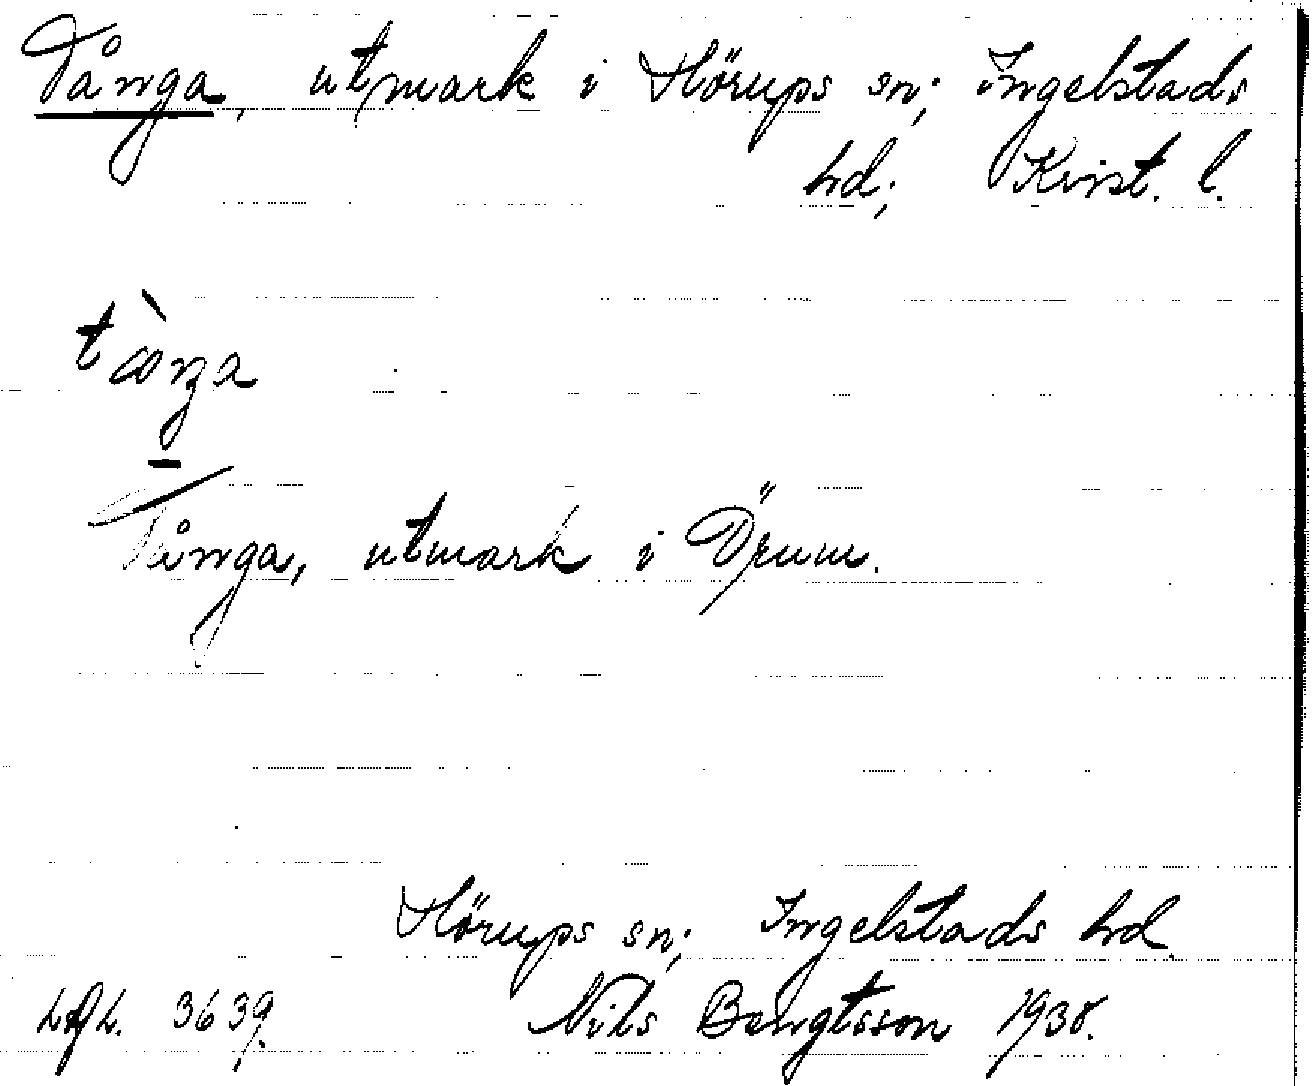 Tånga, utmark i Hörups sn; Ingelstads
hd; Krist. l.
Tånga, utmark i Örum.
Hörups sn; Ingelstads hd
3639. Nils Bengtsson 1930.